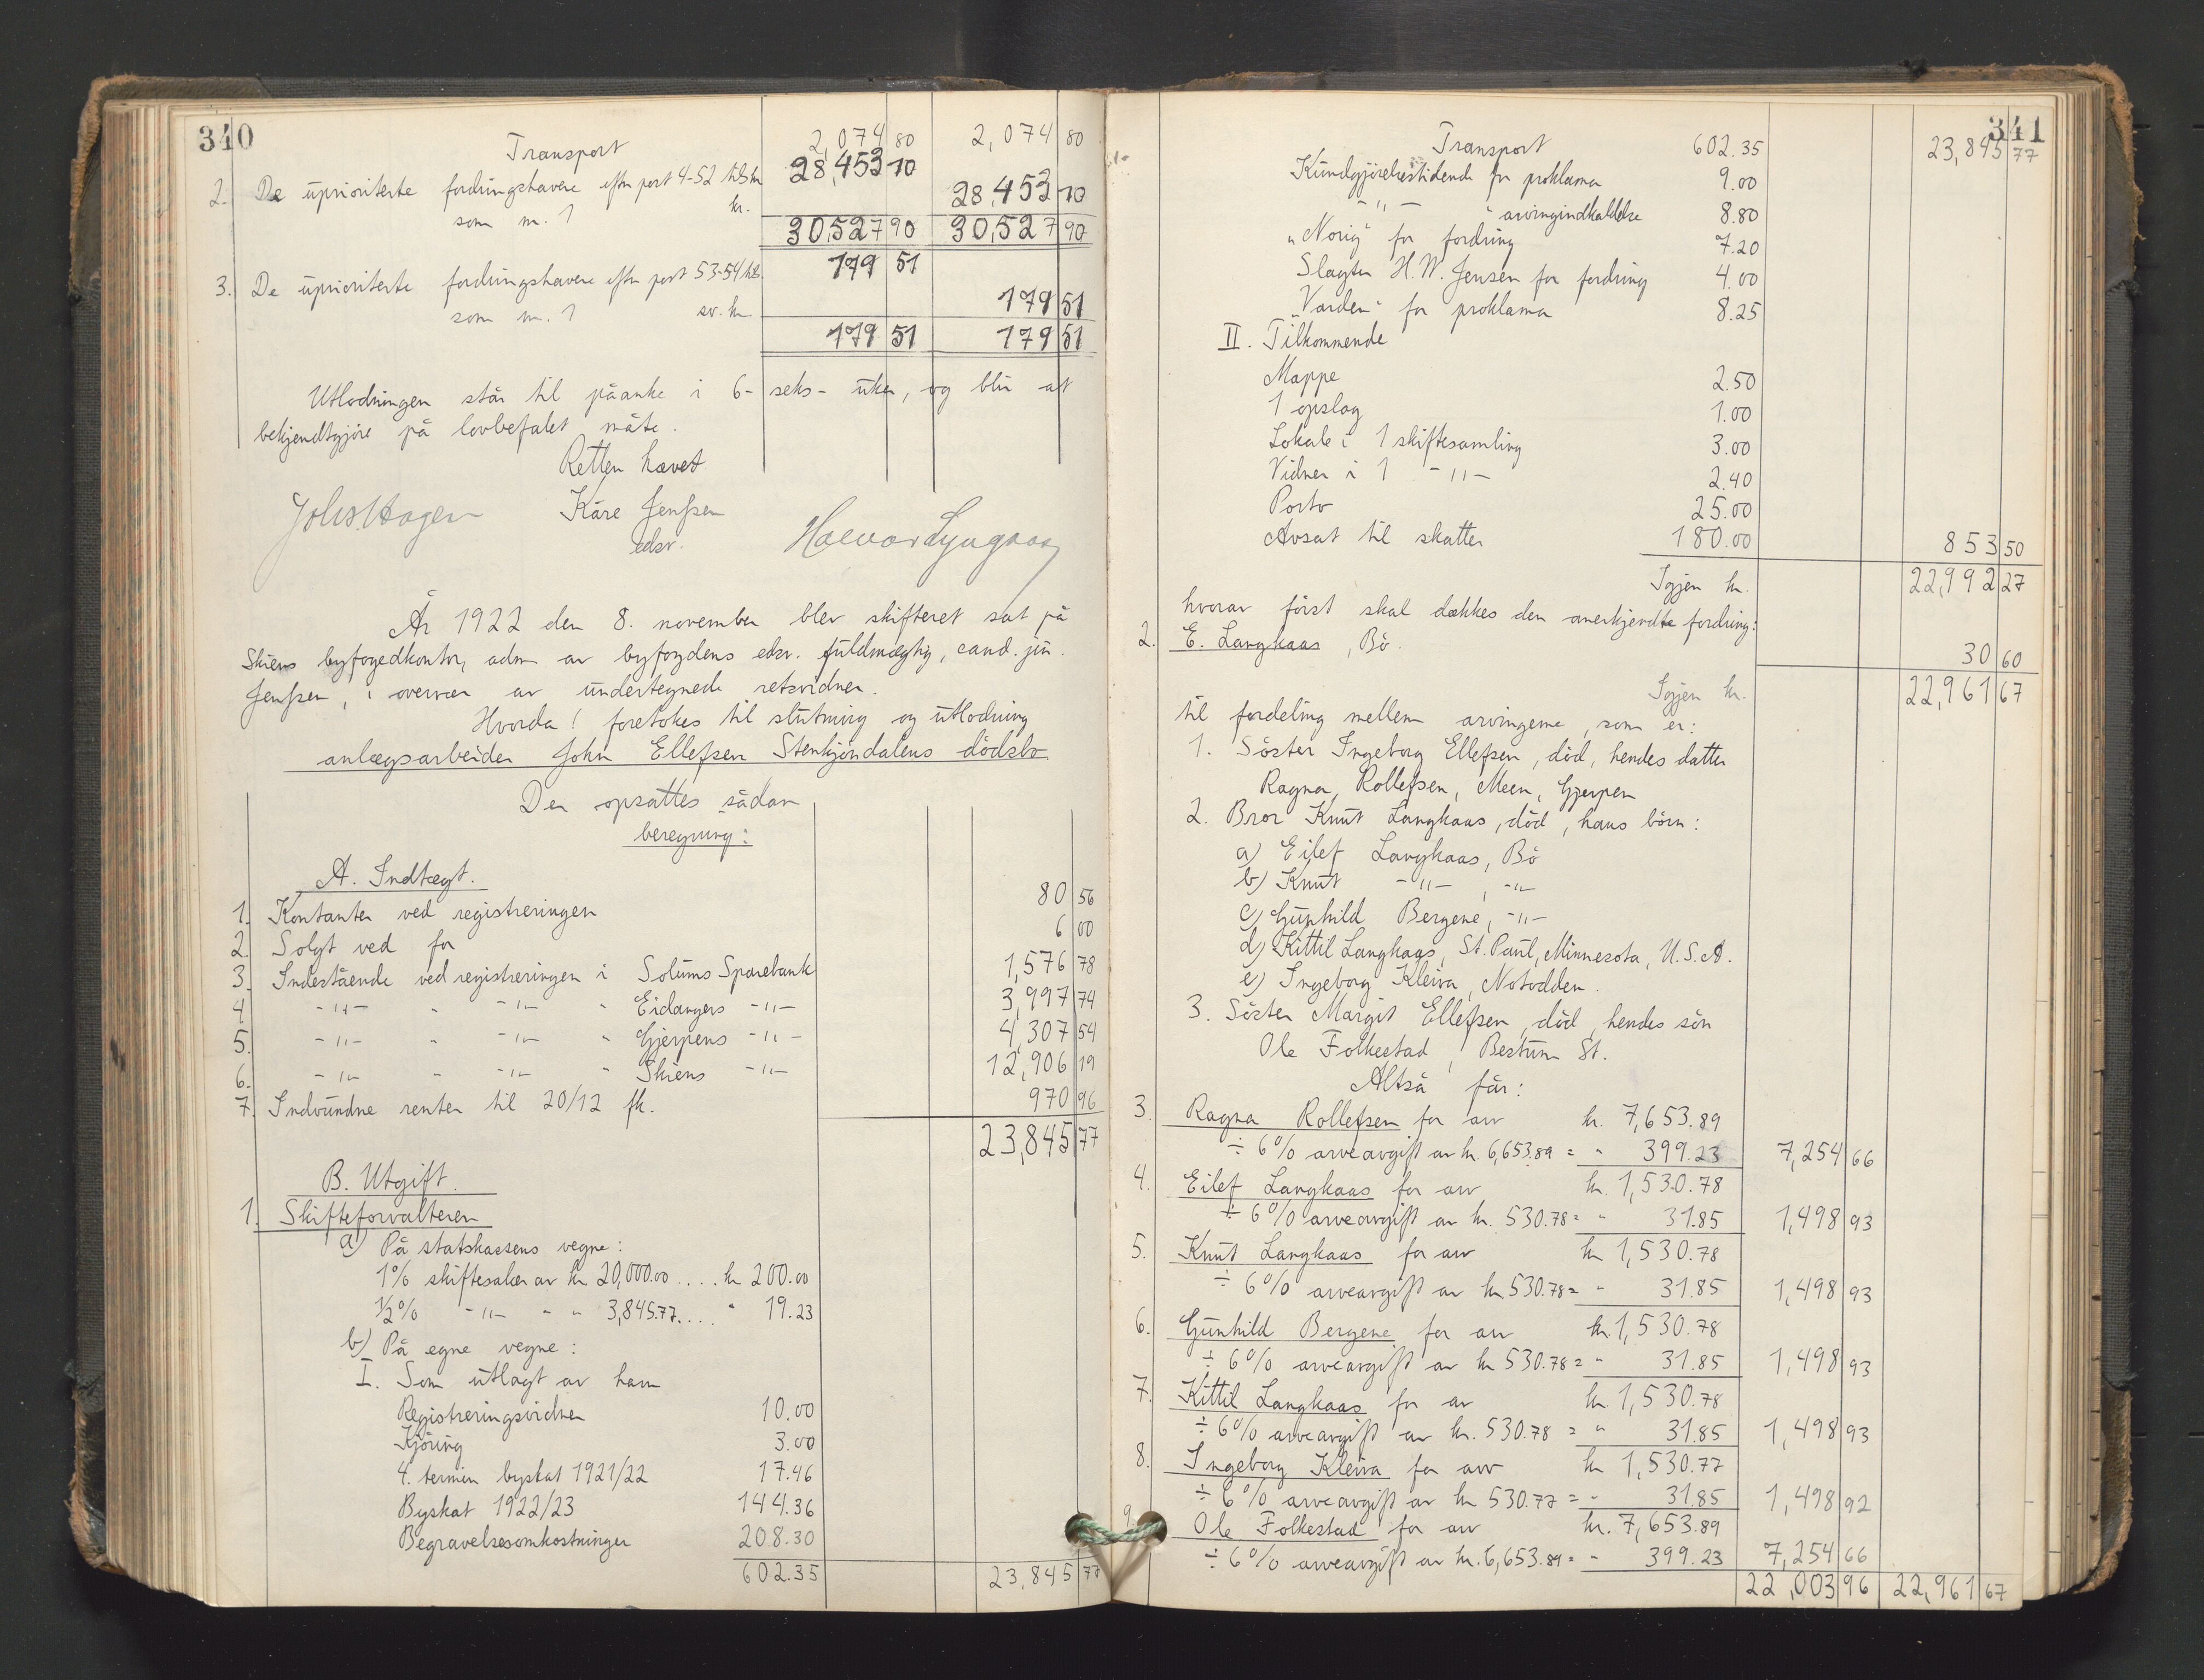 340
Transport 2,074 80 2,074 80
2. De uprioriterte fordringshavere efter post 4-52 tils. kr. 28,453 10
som nr. 1 kr. 28,453 10
30,527 90 30,527 90
3. De uprioriterte fordringshavere efter post 53-54 tils. 179 51
som nr. 1 sv. kr. 179 51
179 51 179 51
Utlodningen står til påanke i 6- seks- uker, og blir at
bekjendtgjöre på lovbefalet måte.
Retten hævet.
Johs. Hagen Kåre Jenssen Halvor Lyngaas
edsv.
År 1922 den 8. november blev skifteret sat på
Skiens byfogedkontor, adm av byfogdens edsv. fuldmægtig, cand. jur.
Jenssen, i overvær av undertegnede retsvidner.
Hvorda! foretokes til slutning og utlodning
anlægsarbeider John Ellefsen Stenkjöndalens dödsbo
Der opsattes sådan
beregning:
A. Indtægt.
1. Kontanter ved registreringen 80 56
2. Solgt ved for 6 00
3. Indestående ved registreringen i Solums Sparebank 1,576 78
4. -"- " -"- " Eidangers -"- 3,997 74
5. -"- " -"- " Gjerpens -"- 4,307 54
6. -"- " -"- " Skiens -"- 12,906 19
7. Indvundne renter til 20/12 fk. 970 96
23,845 77
B. Utgift.
1. Skifteforvalteren
a) På statskassens vegne:
1% skiftesalær av kr 20,000.00 .... kr 200.00
½% -"- " " 3,845.77 .... " 19.23
b) På egne vegne:
I. Som utlagt av ham
Registreringsvidner 10.00
Kjöring 3.00
4. termin byskat 1921/22 17.46
Byskat 1922/23 144.36
Begravelsesomkostninger 208.30
602.35 23,845 77
341
Transport 602.35 23,845 77
Kundgjörelsestidende for proklama 9.00
-"- " arvingindkaldelse 8.80
"Norig" for fordring 7.20
Slagter H. W. Jensen for fordring 4.00
"Varden" for proklama 8.25
II. Tilkommende
Mappe 2.50
1 opslag 1.00
Lokale i 1 skiftesamling 3.00
Vidner i 1 -"- 2.40
Porto 25.00
Avsat til skatter 180.00 853 50
Igjen kr. 22,992 27
hvorav först skal dækkes den anerkjendte fordring:
2. E. Langkaas, Bö. 30 60
Igjen kr. 22,961 67
til fordeling mellem arvingerne, som er:
1. Söster Ingeborg Ellefsen, död, hendes datter
Ragna Rollefsen, Meen, Gjerpen
2. Bror Knut Langkaas, död, hans börn:
a) Eilef Langkaas, Bö
b) Knut -"-, -"-
c) Gunhild Bergene, -"-
d) Kittil Langkaas, St. Paul, Minnesota, U.S.A.
e) Ingeborg Kleiva, Notodden.
3. Söster Margit Ellefsen, död, hendes sön
Ole Folkestad, Bestum St.
Altså får:
3. Ragna Rollefsen for arv kr. 7,653.89
÷ 6% arveavgift av kr. 6,653.89 = " 399.23 7,254 66
4. Eilef Langkaas for arv kr. 1,530.78
÷ 6% arveavgift av kr. 530.78 = " 31.85 1,498 93
5. Knut Langkaas for arv kr 1,530.78
÷ 6% arveavgift av kr. 530.78 = " 31.85 1,498 93
6. Gunhild Bergene for arv kr. 1,530.78
÷ 6% arveavgift av kr 530.78 = " 31.85 1,498 93
7. Kittil Langkaas for arv kr. 1,530.78
÷ 6% arveavgift av kr. 530.78 = " 31.85 1,498 93
8. Ingeborg Kleiva for arv kr 1,530.77
÷ 6% arveavgift av kr 530.77 = " 31.85 1,498 92
9. Ole Folkestad for arv kr. 7,653.89
÷ 6% arveavgift av kr. 6,653.89 = " 399.23 7,254 66
22,003 96 22,961 67